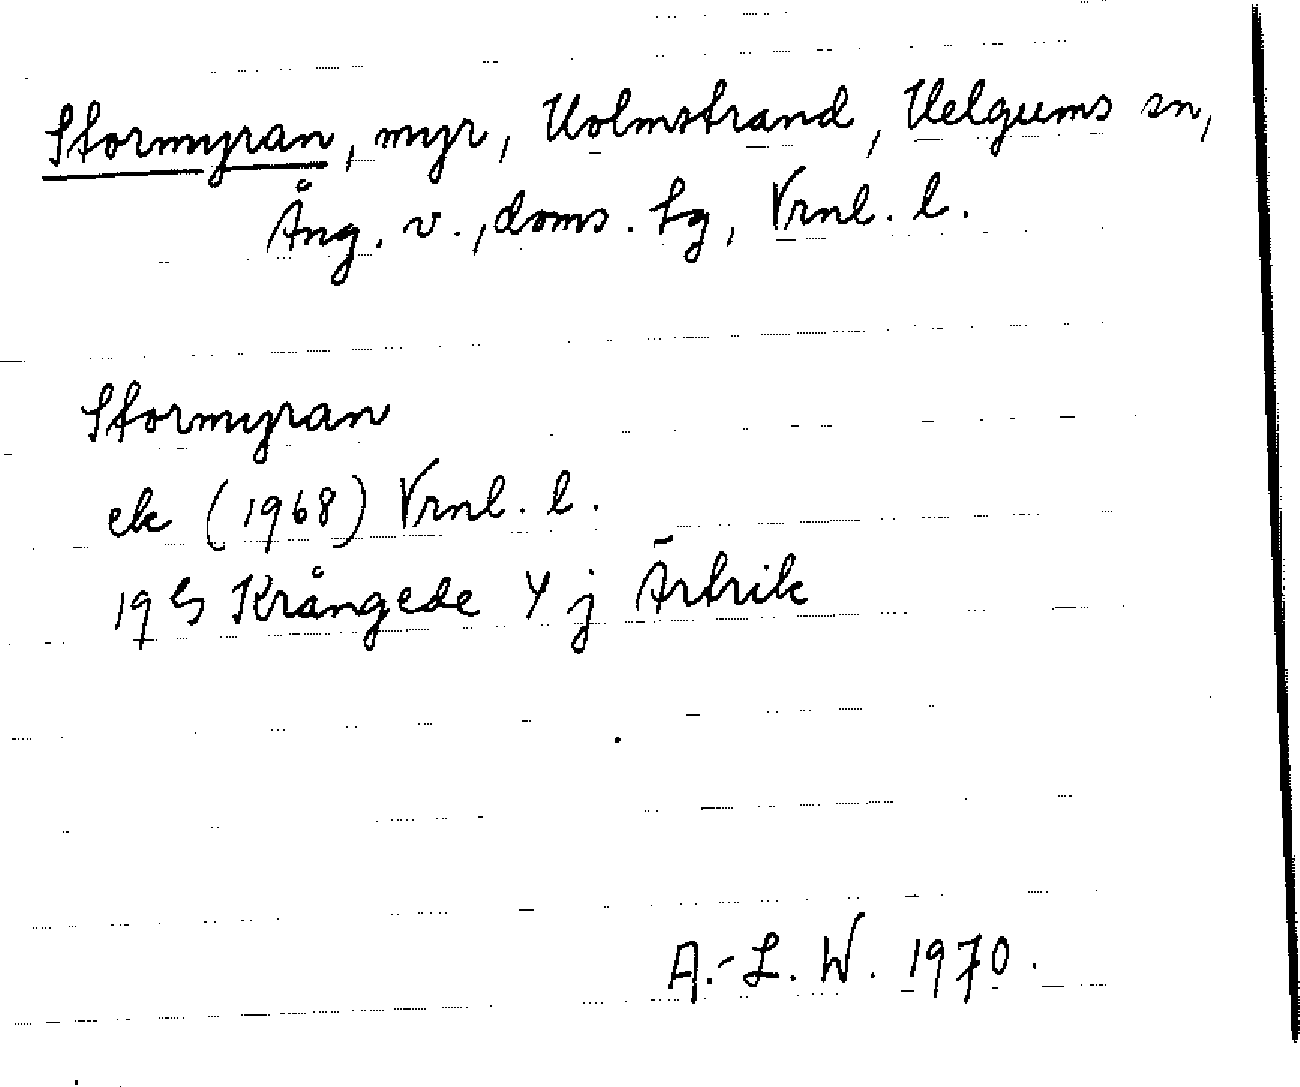 Stormyran, myr, Holmstrand, Helgums sn,
Ång. v., doms. tg, Vrnl. l.
Stormyran
ek (1968) Vrnl. l.
19 G Krångede 4 j Ärtrik
A.-L. W. 1970.